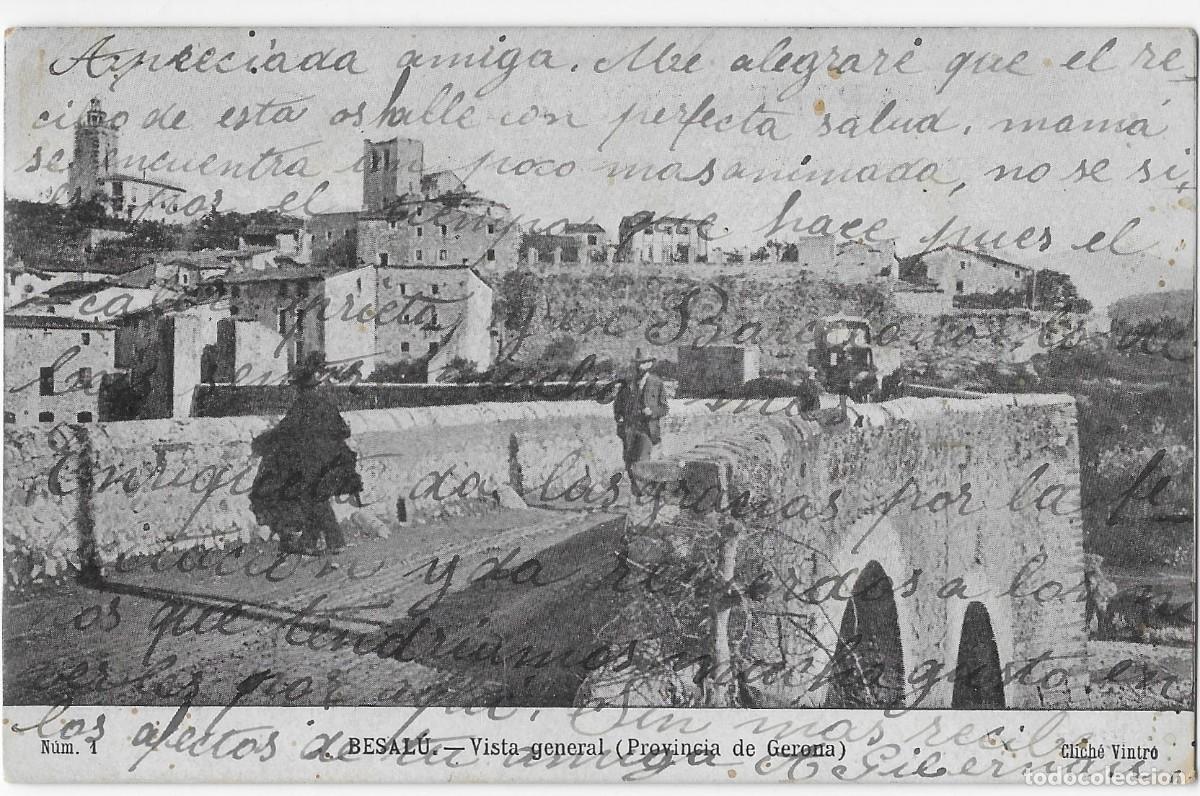 Apreciada amiga. Me alegraré que el re-
cibo de esta os halle con perfecta salud. mamá
se encuentra un poco mas animada, no se si
es por el tiempo que hace pues el
calor aprieta, y en Barcelona
mas
Enriqueta da las gramas por la fe-
litación y da recuerdos a los
nos que tendriamos mucho gusto en
verles por aquí. Sin mas recibe
los afectos de tu amiga A. Gibernau.
Núm. 1
BESALÚ.—Vista general (Provincia de Gerona)
Cliché Vintró
todocoleccion